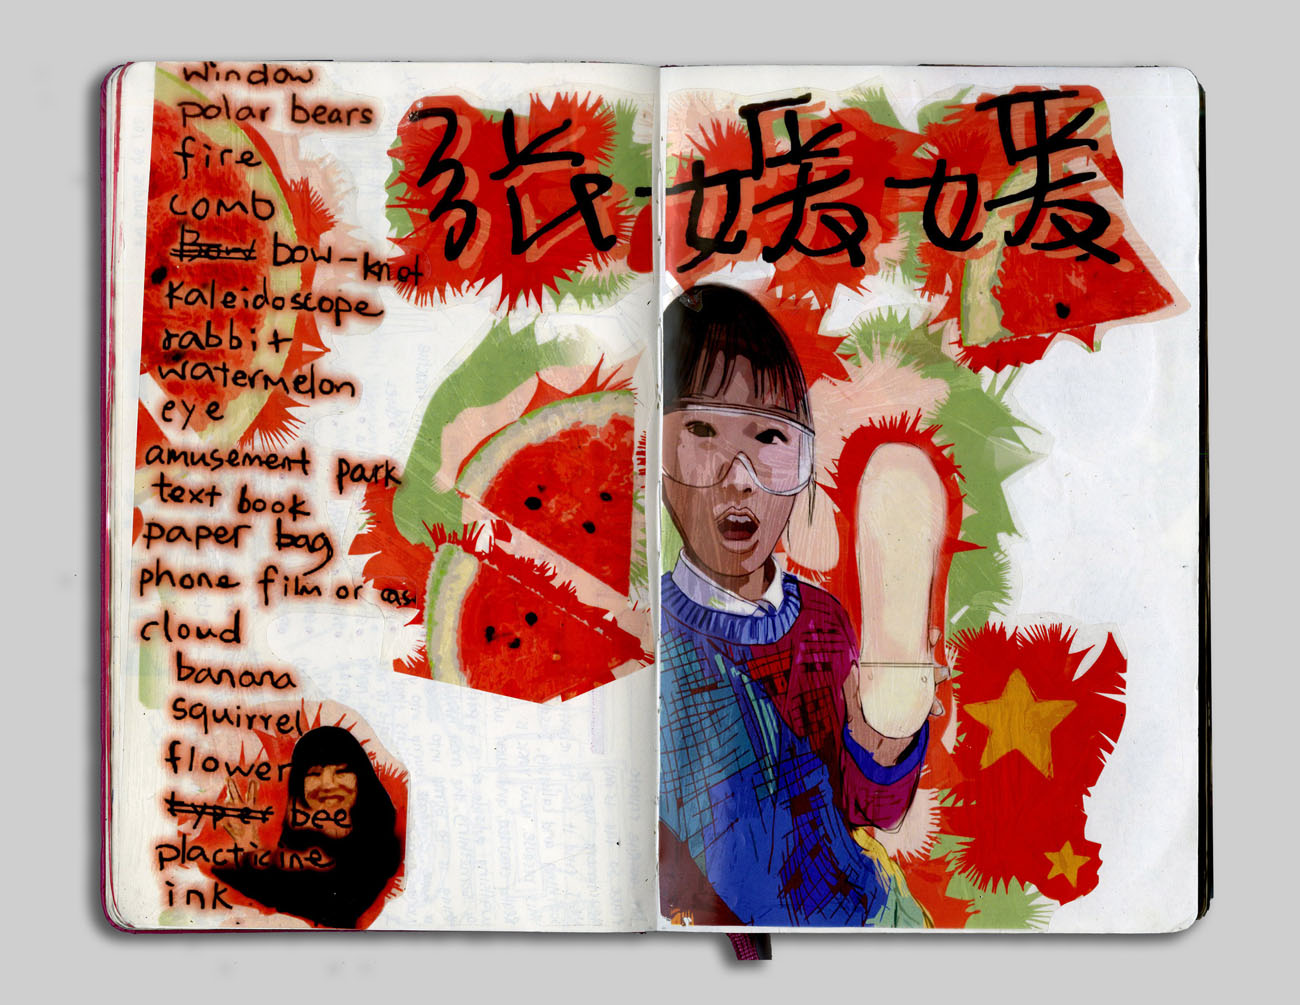 window
polar bears
fire
comb
bow-knot
kaleidoscope
rabbit
watermelon
eye
amusement park
text book
paper bag
phone film or
cloud
banana
squirrel
flower
typer bee
placticine
ink
张媛媛